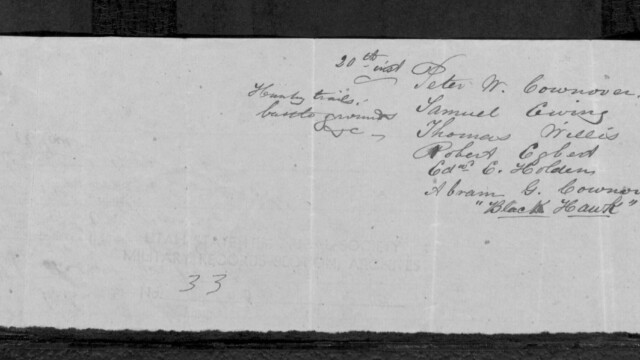 20th inst
Hunty trails,
battle grounds
&c
Peter W. Cownover.
Samuel Ewing
Thomas Willis
Robert Egbert
Edm C. Holden
"Abram G. Cownov
"Black Hawk"
33